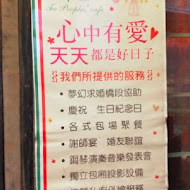 The People's cafe
心中有愛
天天都是好日子
我們所提供的服務
夢幻求婚橋段協助
慶祝 生日紀念日
各式包場聚餐
謝師宴 婚友聯誼
鋼琴演奏音樂發表會
獨立包廂投影設備